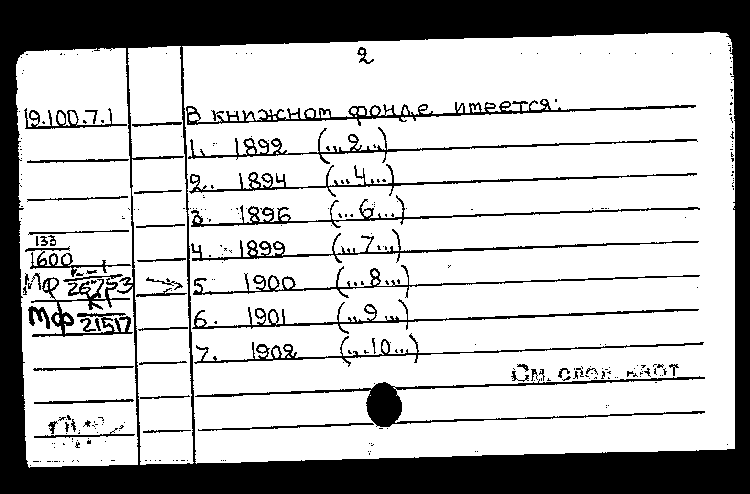 2
19.100.7.1 В книжном фонде имеется:
1. 1892 (...2...)
2. 1894 (...4...)
3. 1896 (...6...)
133
1600
4. 1899 (...7...)
МФ К-1
26753 5. 1900 (...8...)
МФ КГ
21517 6. 1901 (...9...)
7. 1902 (...10...)
См. след. карт